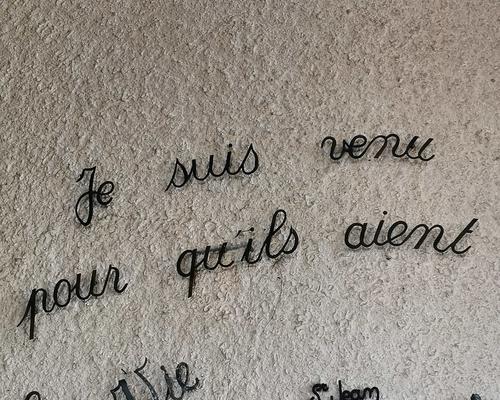 Je suis venu
pour qu'ils aient
Vie
St Jean